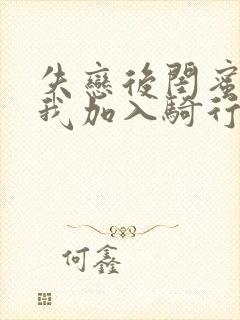 失戀後閨蜜
我加入騎行
何鑫